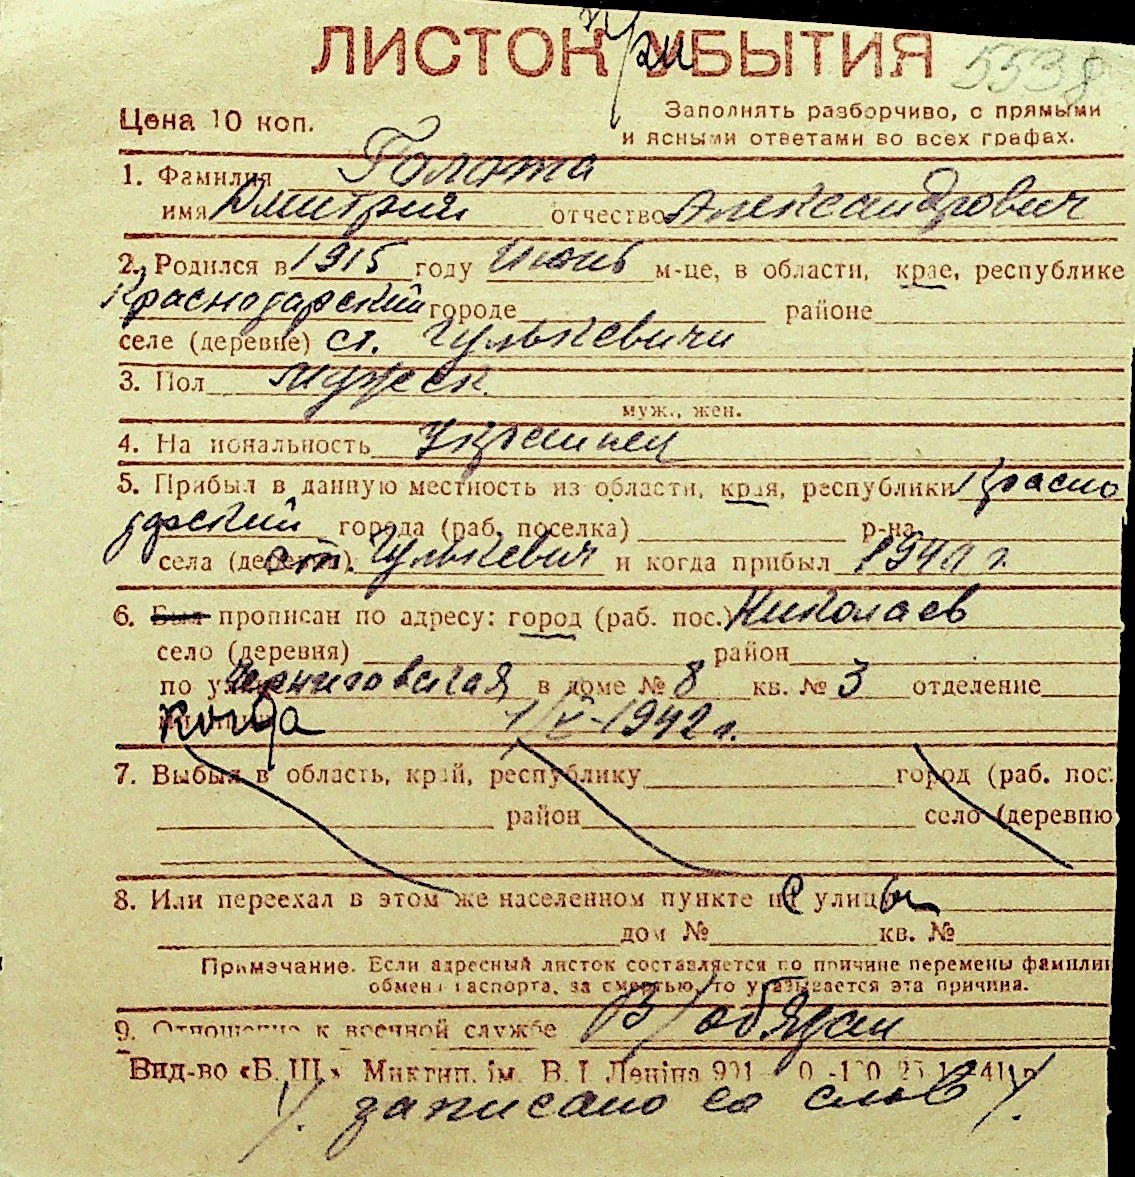 при
ЛИСТОК УБЫТИЯ 5538
Цена 10 коп. Заполнять разборчиво, с прямыми
и ясными ответами во всех графах.
1. Фамилия Голота
имя Дмитрий отчество Александрович
2. Родился в 1915 году Июнь м-це, в области, крае, республике
Краснодарский городе районе
селе (деревне) ст. Гулькевичи
3. Пол мужск.
муж., жен.
4. На иональность Украинец
5. Прибыл в данную местность из области, края, республики Красно
дарский города (раб. поселка) р-на
села (деревни) ст. Гулькевич и когда прибыл 1940 г.
6. Был прописан по адресу: город (раб. пос.) Николаев
село (деревня) район
по улице Черниговская в доме № 8 кв. № 3 отделение
когда 1/V-1942 г.
7. Выбыл в область, край, республику город (раб. пос.
район село (деревню
8. Или переехал в этом же населенном пункте с улицы
дом № кв. №
Примечание. Если адресный листок составляется по причине перемены фамилии
обмена паспорта, за смертью, то указывается эта причина.
9. Отношение к военной службе В/обязан
Вид-во «Б. Ш.» Миктип. ім. В. І. Леніна
/. записано со слов /.